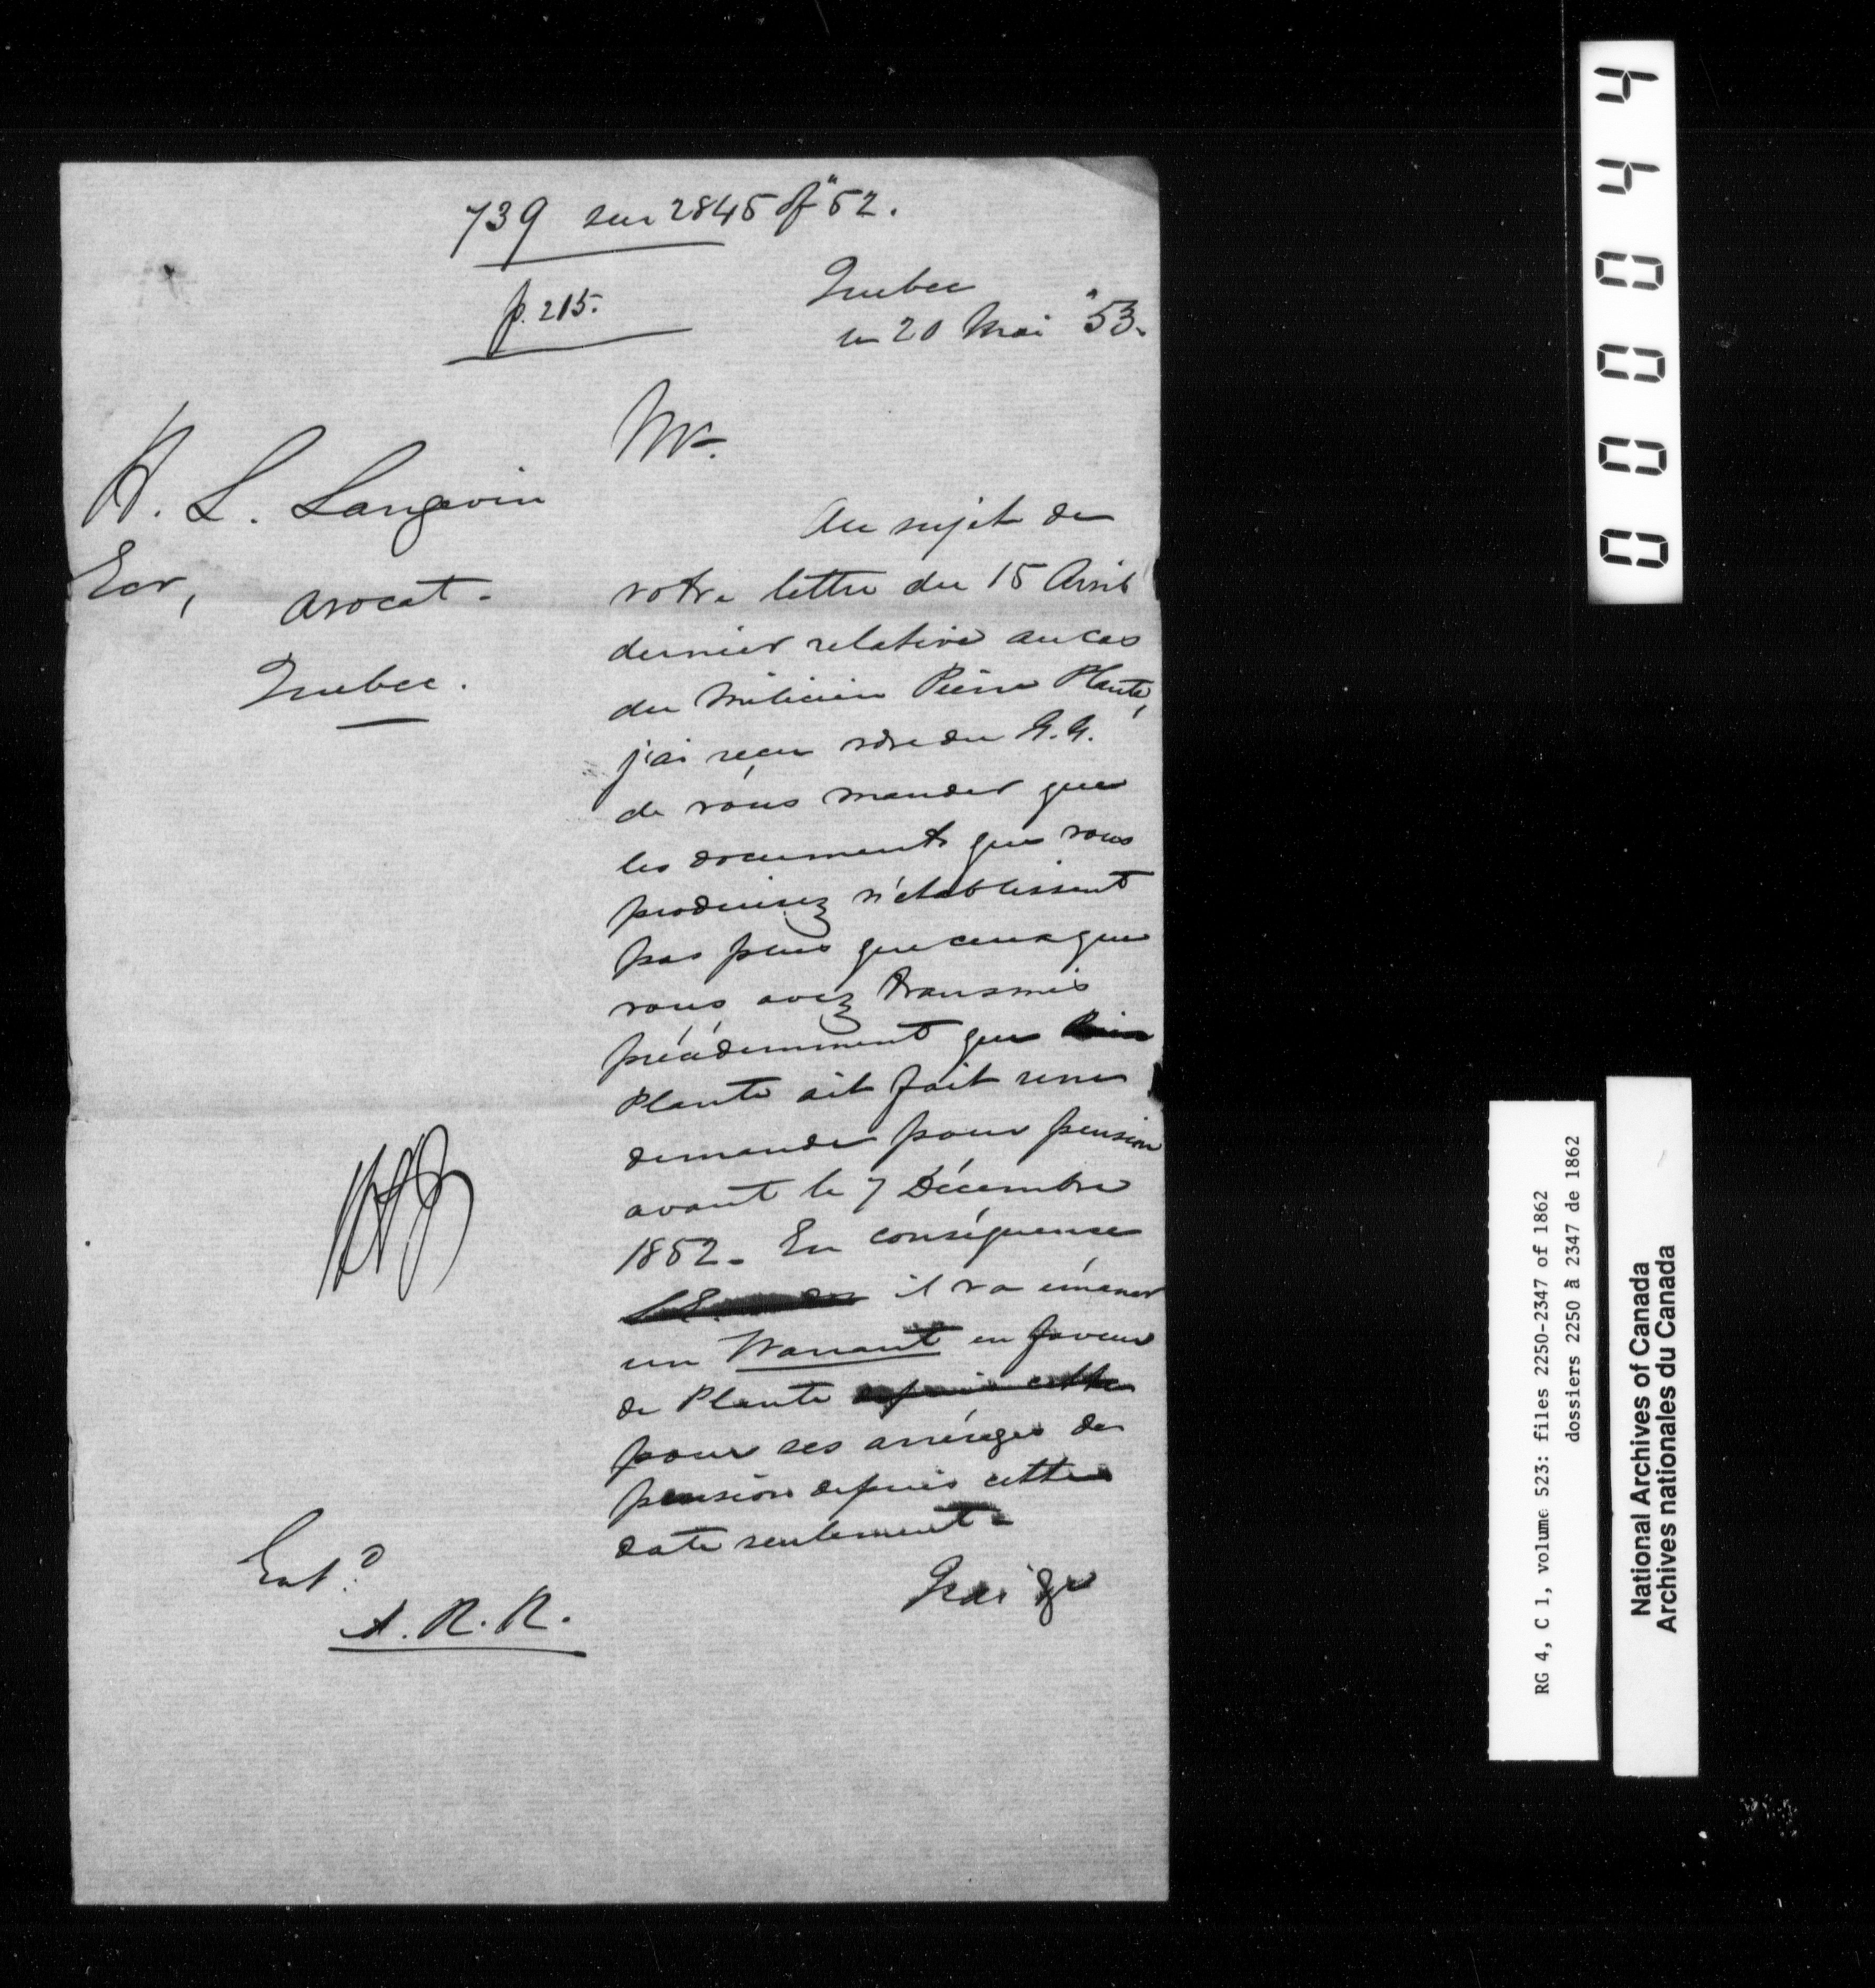 739 sur 2845 of "52.
p. 215.
Quebec
le 20 Mai "53.
Mr.
H. L. Langevin
Ecr,
avocat.
Quebec.
Au sujet de
votre lettre du 15 Avril
dernier relative au cas
du Milicien Pierre Plante,
j'ai reçu ordre du G. G.
de vous mander que
les documents que vous
produisez n'établissent
pas plus que ceux que
vous avez transmis
précédemment que
Plante ait fait une
demande pour pension
avant le 7 Décembre
1852. En conséquence
il va émaner
un Warrant en faveur
de Plante depuis cette
pour ses arrérages de
pension depuis cette
date seulement.
Entd
A. R. R.
000044
RG 4, C 1, volume 523: files 2250-2347 of 1862
dossiers 2250 à 2347 de 1862
National Archives of Canada
Archives nationales du Canada